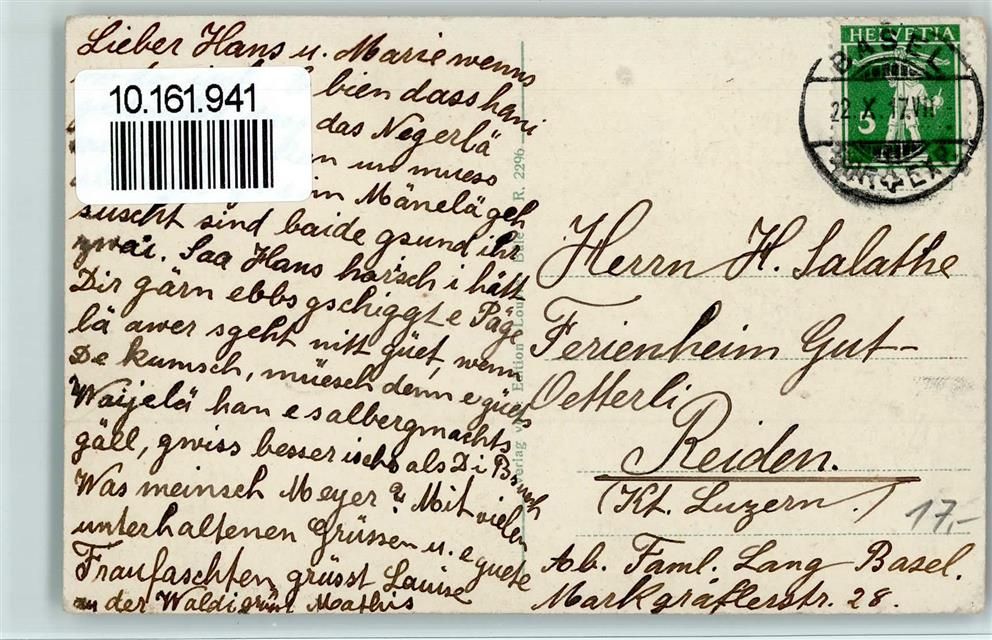 Lieber Hans u. Marie wenns
bien dass hani
das Negerlä
un muess
in Mänelä geh
suscht sind baide gsund ihr
zwai. Saa Hans horsch i hätt
Dir gärn ebbs gschiggt e Päge
lä awer s geht nitt güet, wenn
De kumsch, müesch denn e güets
Waijelä han e salbergmachts
gäll, gwiss besser ischs als Di
Was meinsch Meyer? Mit vielen
unterhaltenen Grüssen u. e guete
Fraufaschten grüsst Louise
an der Waldi grüsst Mathis
10.161.941
Verlag v. Edition Louis Bâle R. 2296
HELVETIA
5
BASEL
22. X. 17. VII
Herrn H. Salathe
Ferienheim Gut-
Oetterli
Reiden.
(Kt. Luzern.)
17,-
Ab. Faml. Lang Basel.
Markgräflerstr. 28.